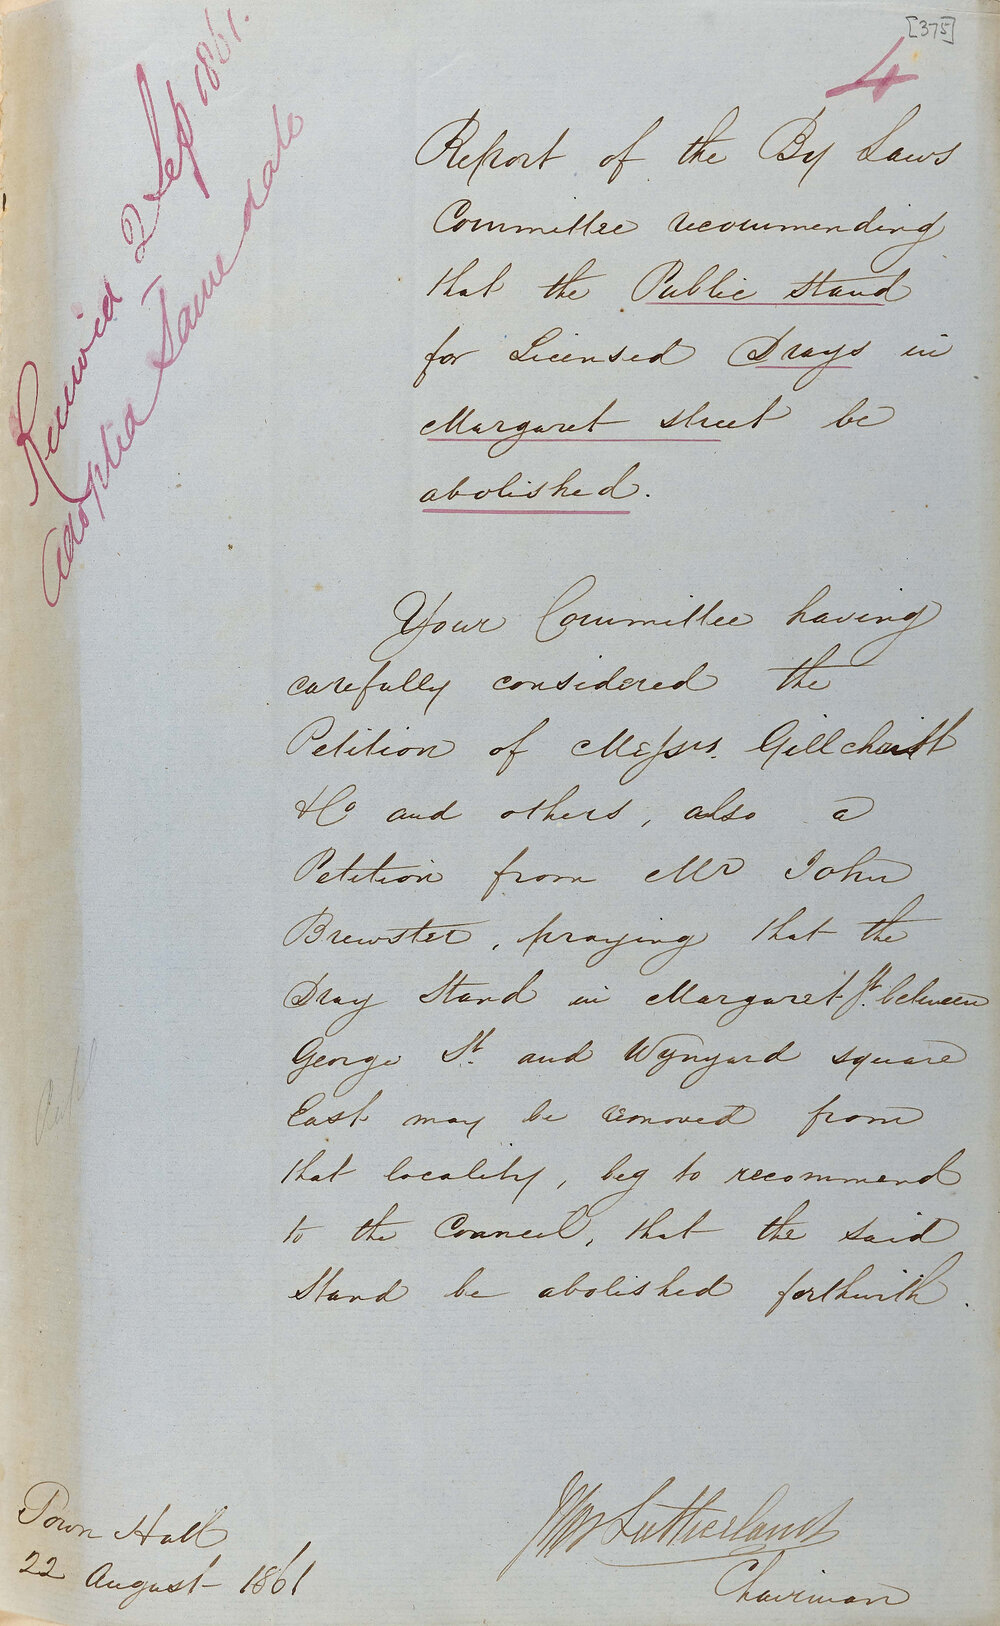 [375]
4
Received 2 Sep 1861.
Adopted Same date
Report of the By Laws
Committee recommending
that the Public Stand
for Licensed Drays in
Margaret Street be
abolished.
Your Committee having
carefully considered the
Petition of Messrs. Gillchrist
& Co and others, also a
Petition from Mr John
Brewster, praying that the
Dray Stand in Margaret St. between
George St. and Wynyard Square
East may be removed from
that locality, beg to recommend
to the Council, that the said
Stand be abolished forthwith.
Town Hall
22 August 1861
Sutherland
Chairman